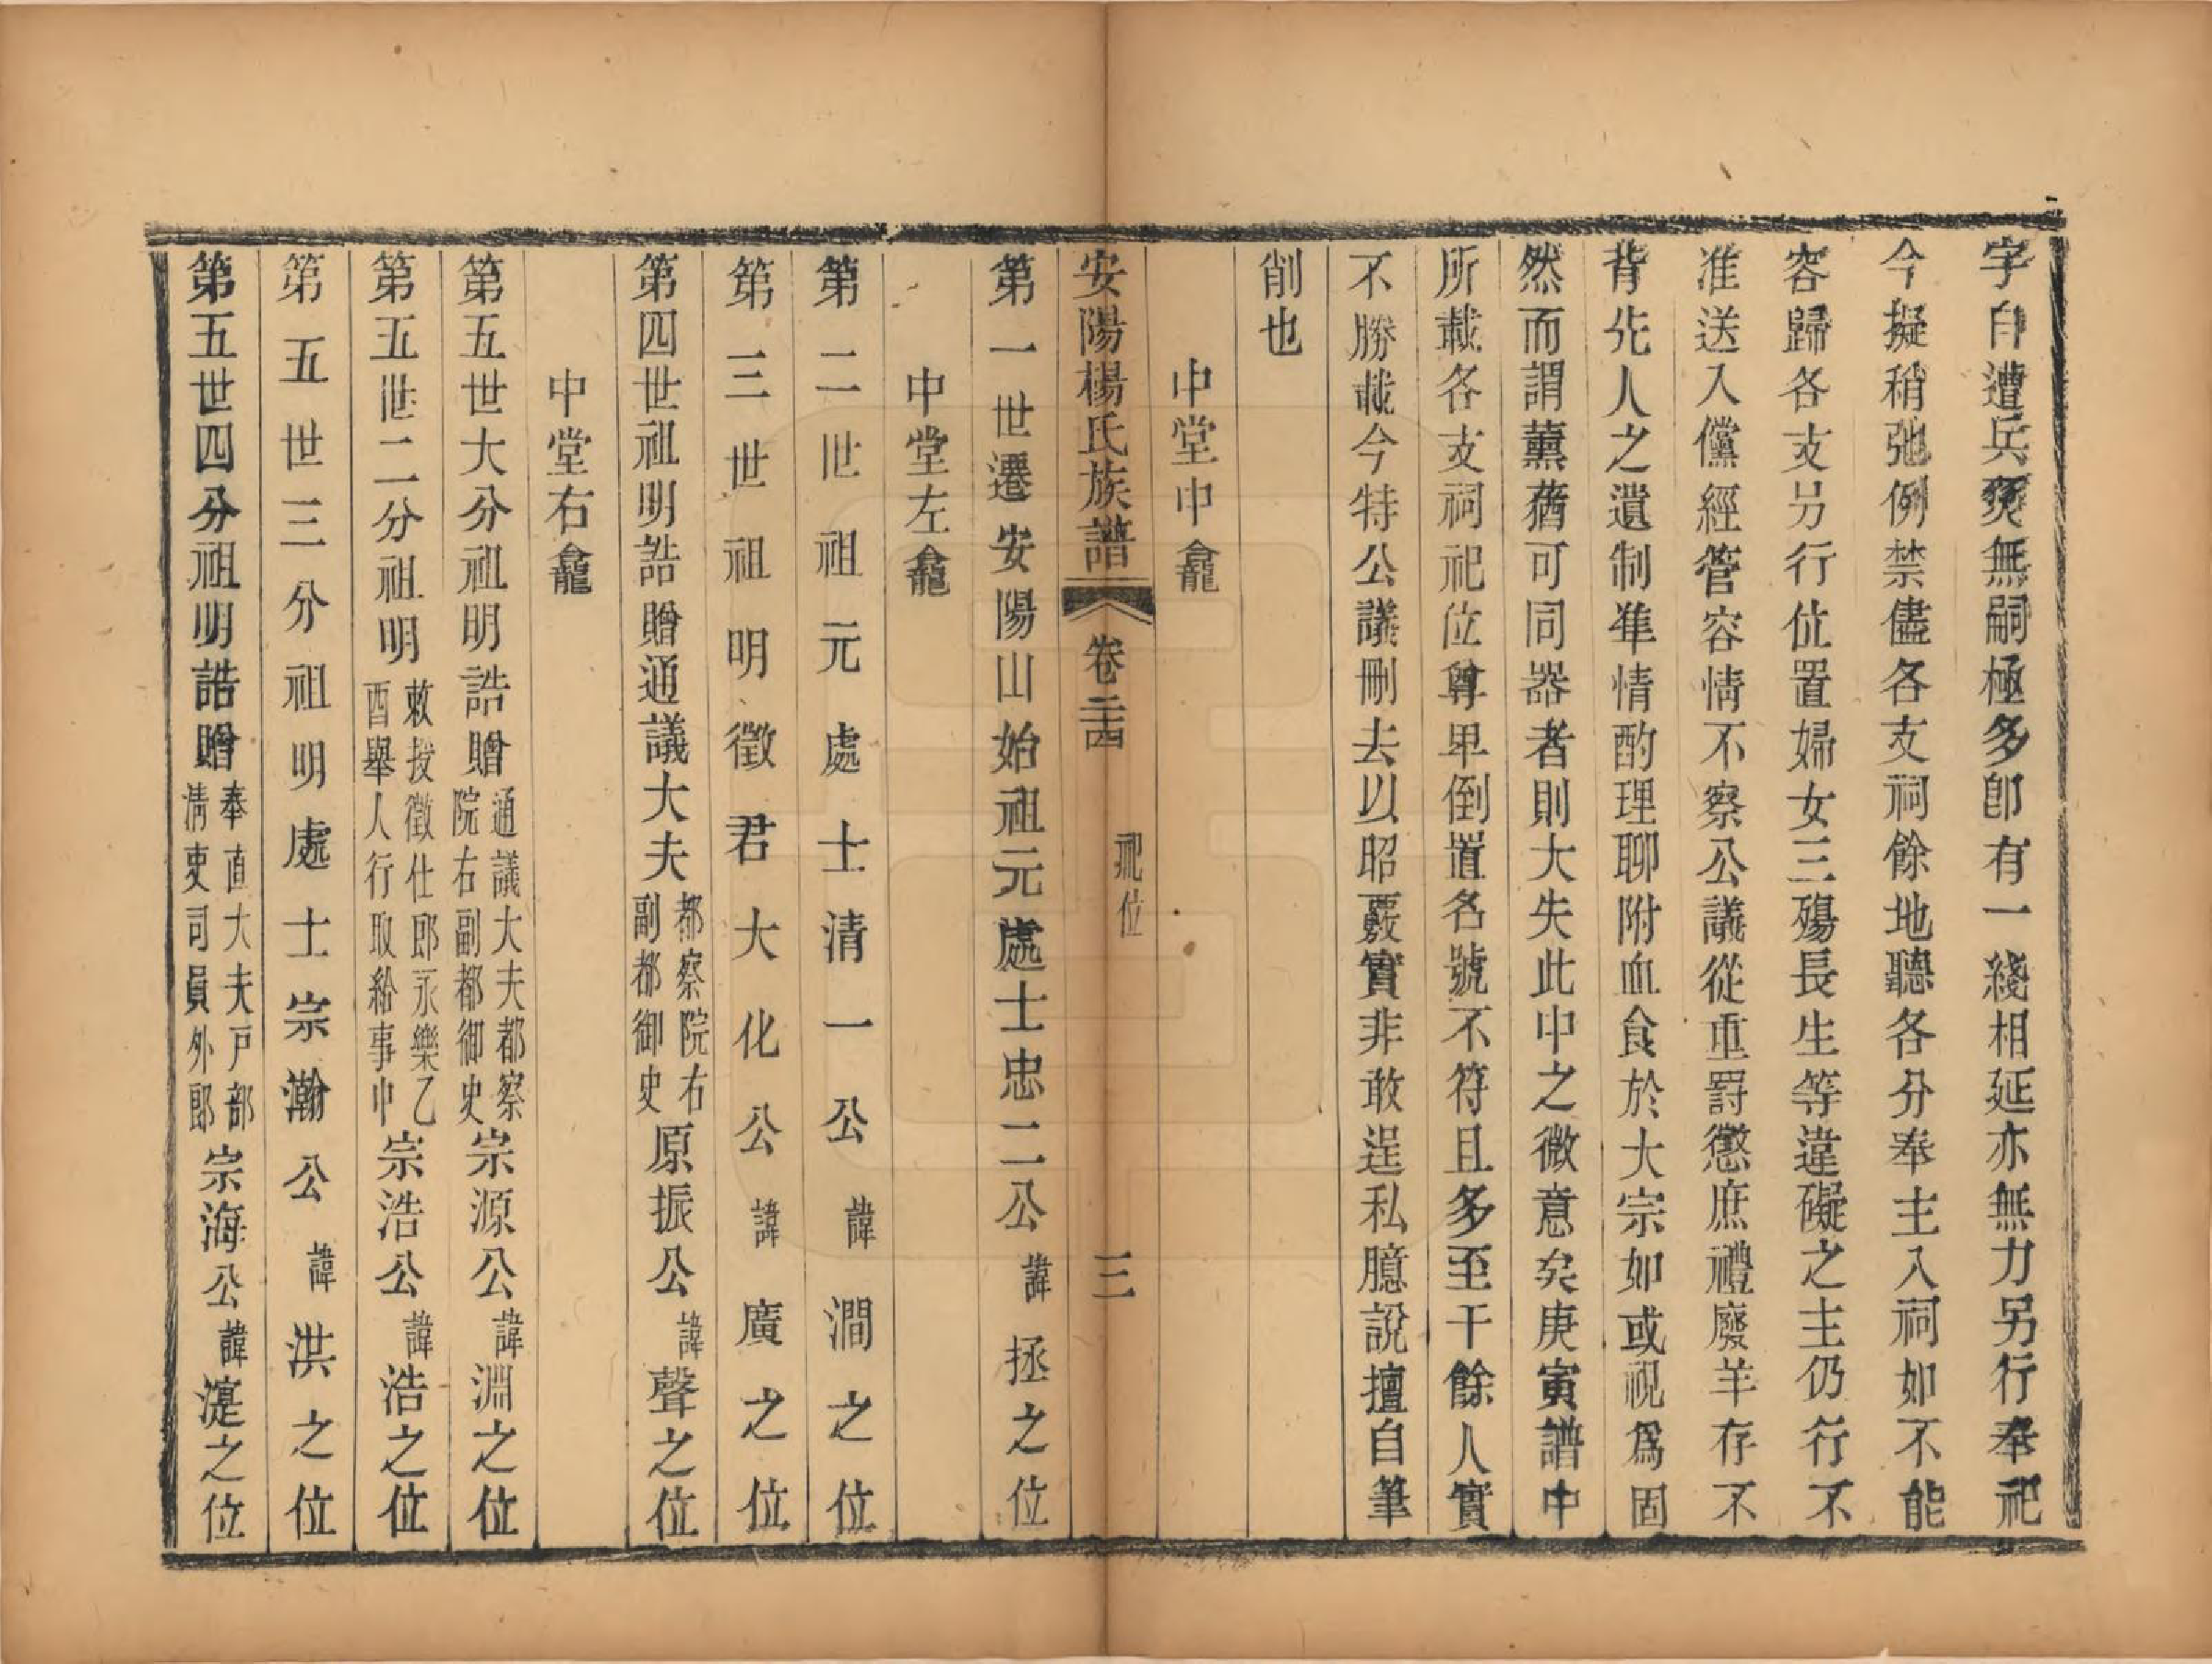 字自遭兵燹無嗣極多卽有一綫相延亦無力另行奉祀
今擬稍弛例禁儘各支祠餘地聽各分奉主入祠如不能
容歸各支另行位置婦女三殤長生等違礙之主仍行不
准送入儻經管容情不察公議從重罸懲庶禮廢羊存不
背先人之遺制準情酌理聊附血食於大宗如或視爲固
然而謂薰蕕可同器者則大失此中之微意矣庚寅譜中
所載各支祠祀位尊卑倒置名號不符且多至千餘人實
不勝載今特公議刪去以昭覈實非敢逞私臆說擅自筆
削也
中堂中龕
安陽楊氏族譜 卷二十四 祀位 三
第一世遷安陽山始祖元處士忠二公諱拯之位
中堂左龕
第二世祖元處士清一公諱澗之位
第三世祖明徵君大化公諱廣之位
第四世祖明誥贈通議大夫都察院右副都御史原振公諱聲之位
中堂右龕
第五世大分祖明誥贈通議大夫都察院右副都御史宗源公諱淵之位
第五世二分祖明敕授徵仕郎永樂乙酉舉人行取給事中宗浩公諱浩之位
第五世三分祖明處士宗瀚公諱洪之位
第五世四分祖明誥贈奉直大夫戸部清吏司員外郎宗海公諱湹之位